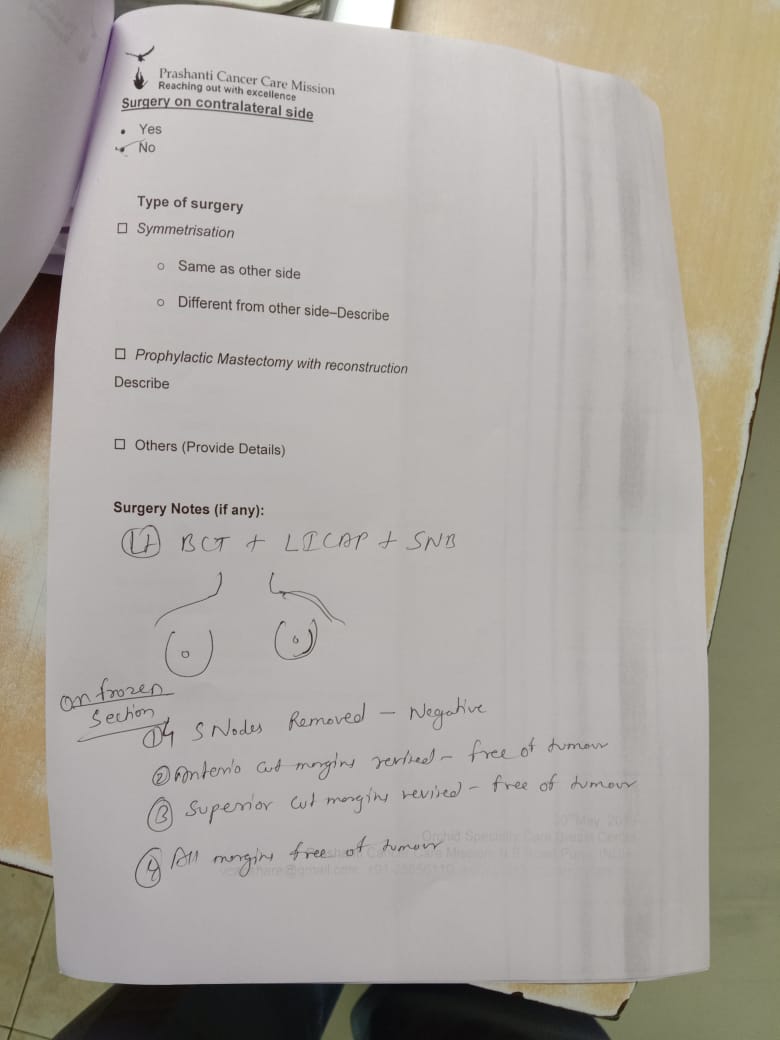 Prashanti Cancer Care Mission
Reaching out with excellence
Surgery on contralateral side
• Yes
• No
Type of surgery
☐ Symmetrisation
o Same as other side
o Different from other side–Describe
☐ Prophylactic Mastectomy with reconstruction
Describe
☐ Others (Provide Details)
Surgery Notes (if any):
Lt BCT + LICAP + SNB
On frozen
Section
① 4 S Nodes Removed – Negative
② Anterio cut margins revised – free of tumour
③ Superior cut margins revised – free of tumour
④ All margins free of tumour